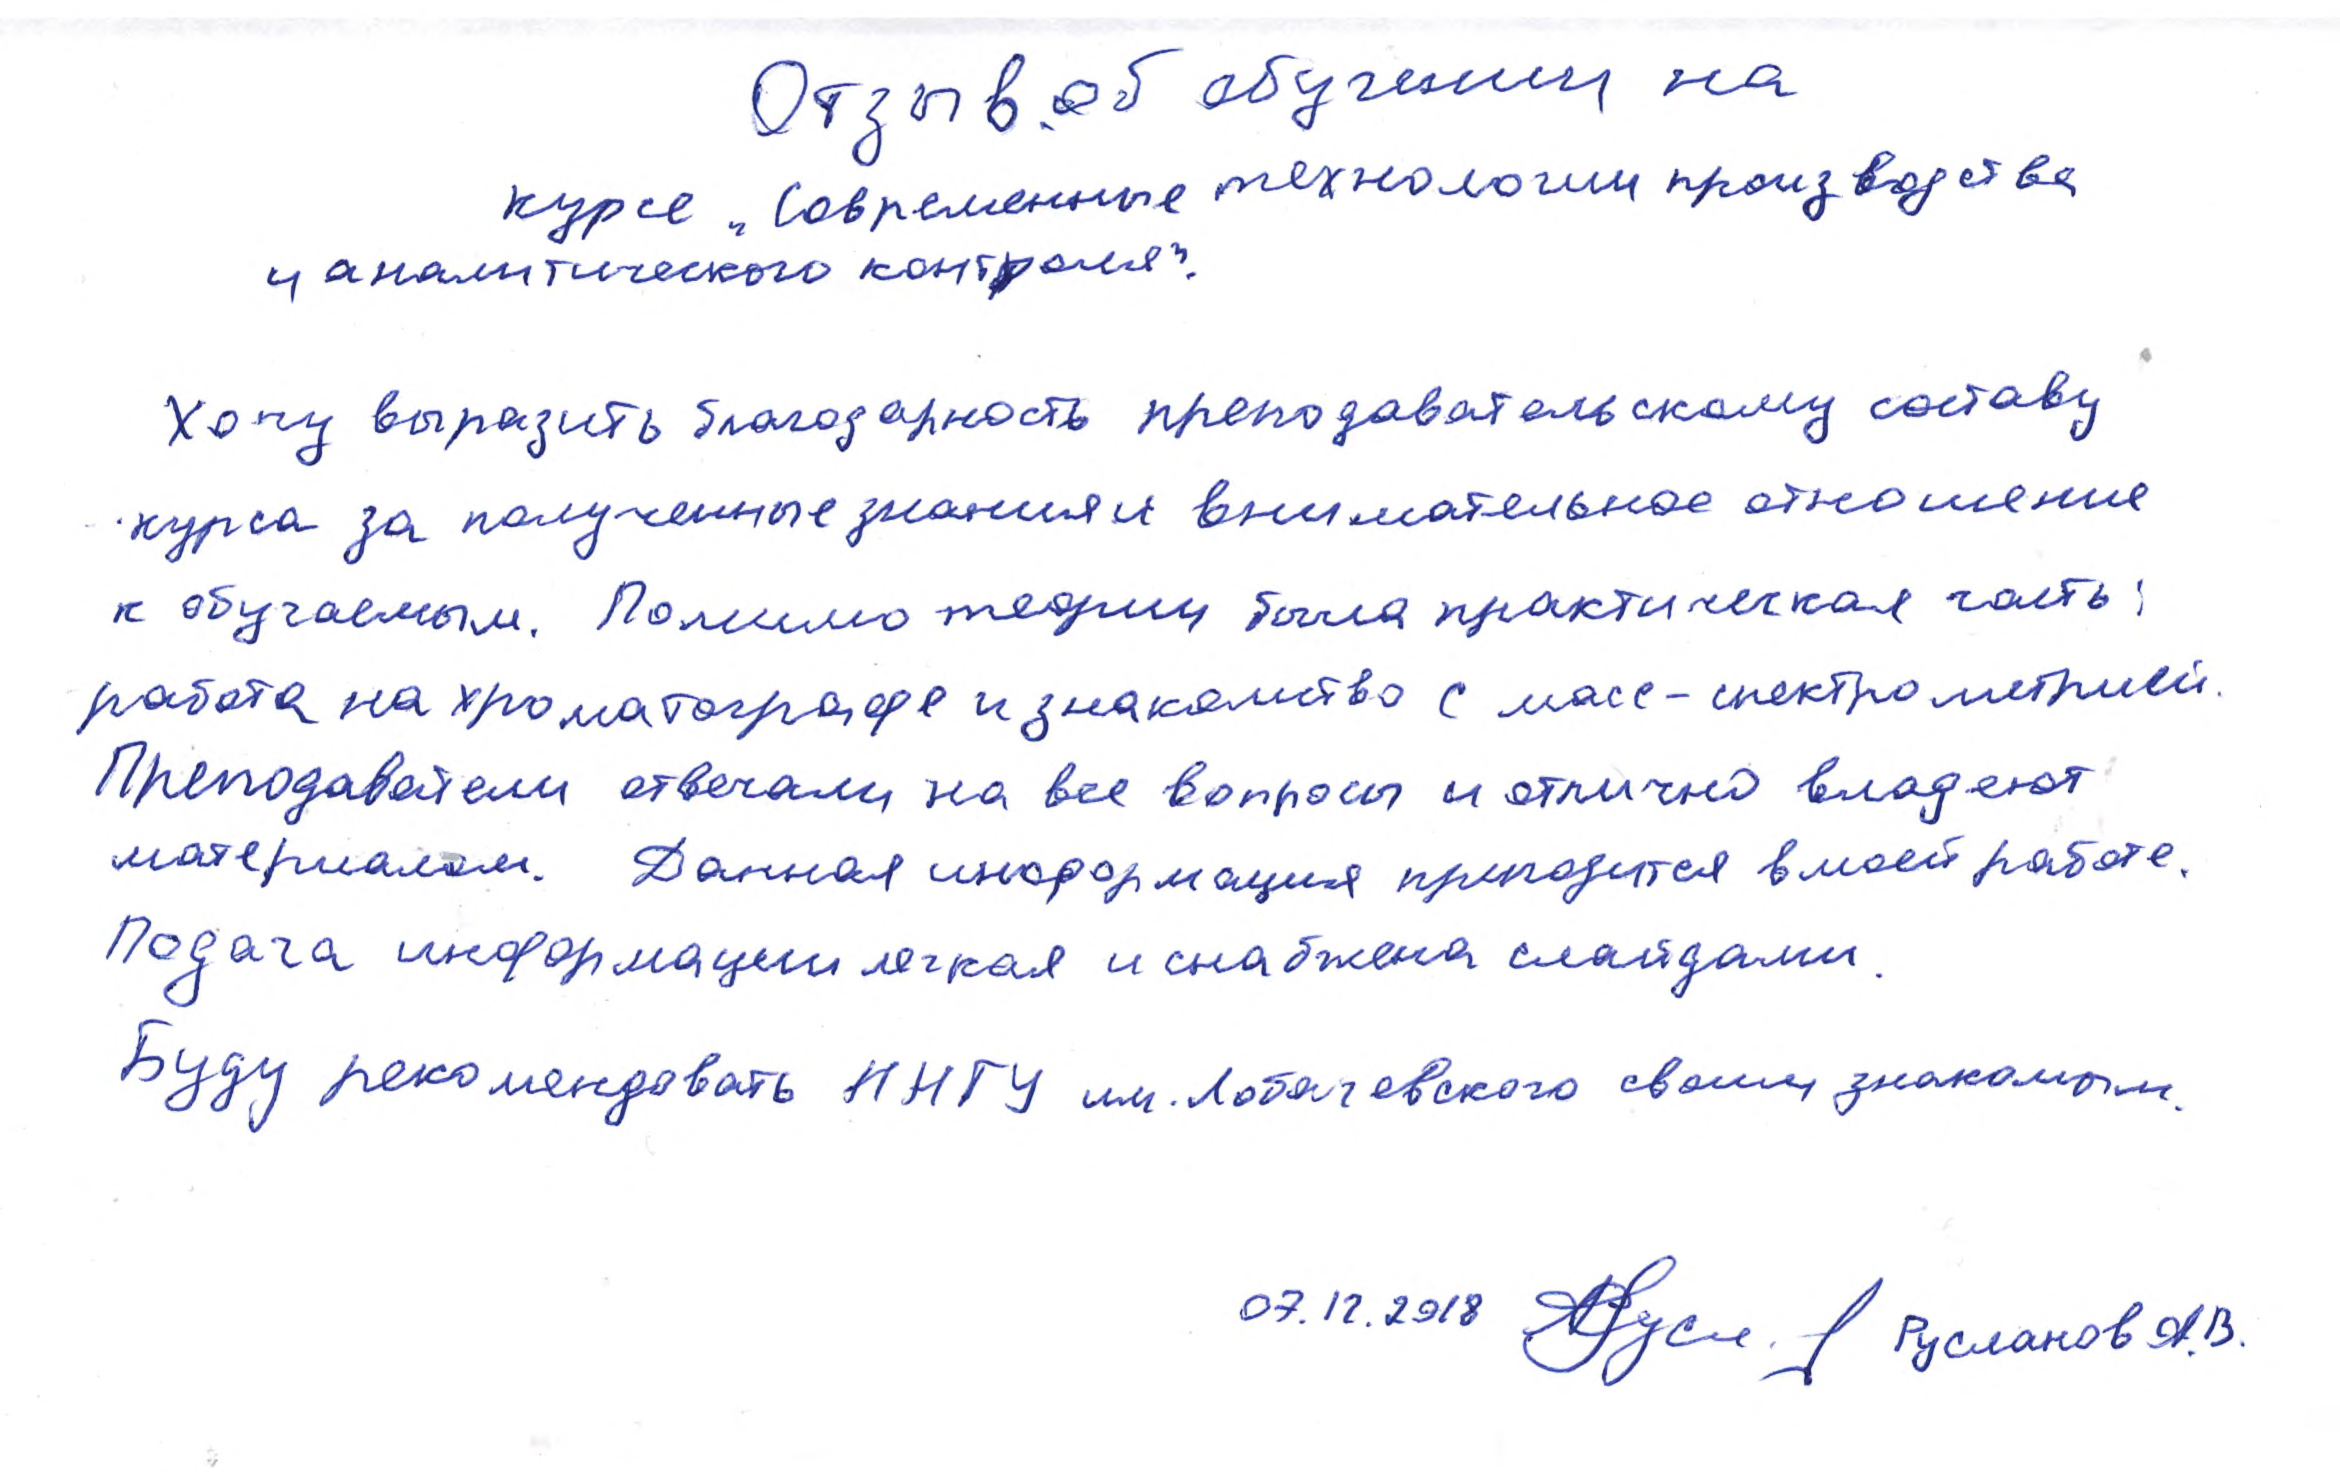 Отзыв об обучении на
курсе „Современные технологии производства
и аналитического контроля".
Хочу выразить благодарность преподавательскому составу
курса за полученные знания и внимательное отношение
к обучаемым. Помимо теории была практическая часть:
работа на хроматографе и знакомство с масс-спектрометрией.
Преподаватели отвечали на все вопросы и отлично владеют
материалом. Данная информация пригодится в моей работе.
Подача информации легкая и снабжена слайдами.
Буду рекомендовать ННГУ им. Лобачевского своим знакомым.
07.12.2018 Русл. Русланов А.В.